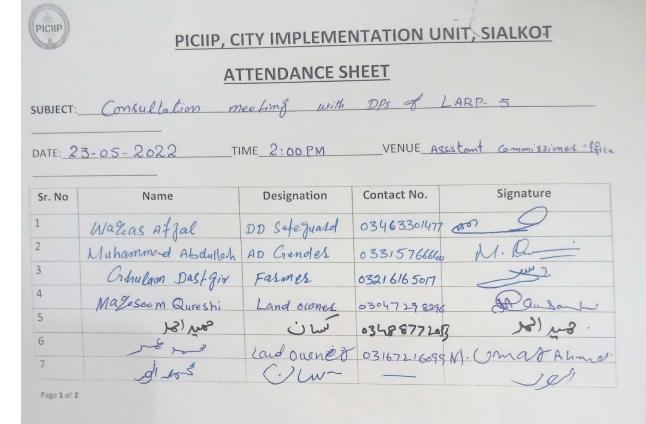 PICIIP
PICIIP, CITY IMPLEMENTATION UNIT, SIALKOT
ATTENDANCE SHEET
SUBJECT: Consultation meeting with DPs of LARP-5
DATE: 23-05-2022 TIME 2:00 PM VENUE Assistant Commissioner office
Sr. No Name Designation Contact No. Signature
1 Waqas Afzal DD Safeguard 03463301477
2 Muhammad Abdullah AD Gender M.
3 Ghulam Dastgir Farmer 03216165017
4 Maqsoom Qureshi Land owner 03047298296
5 حمید احمد کسان حمید احمد
6 محمد عمر Land owner 03167216099 M. Umar Ahmed
7 محمد انور کسان انور
Page 1 of 2